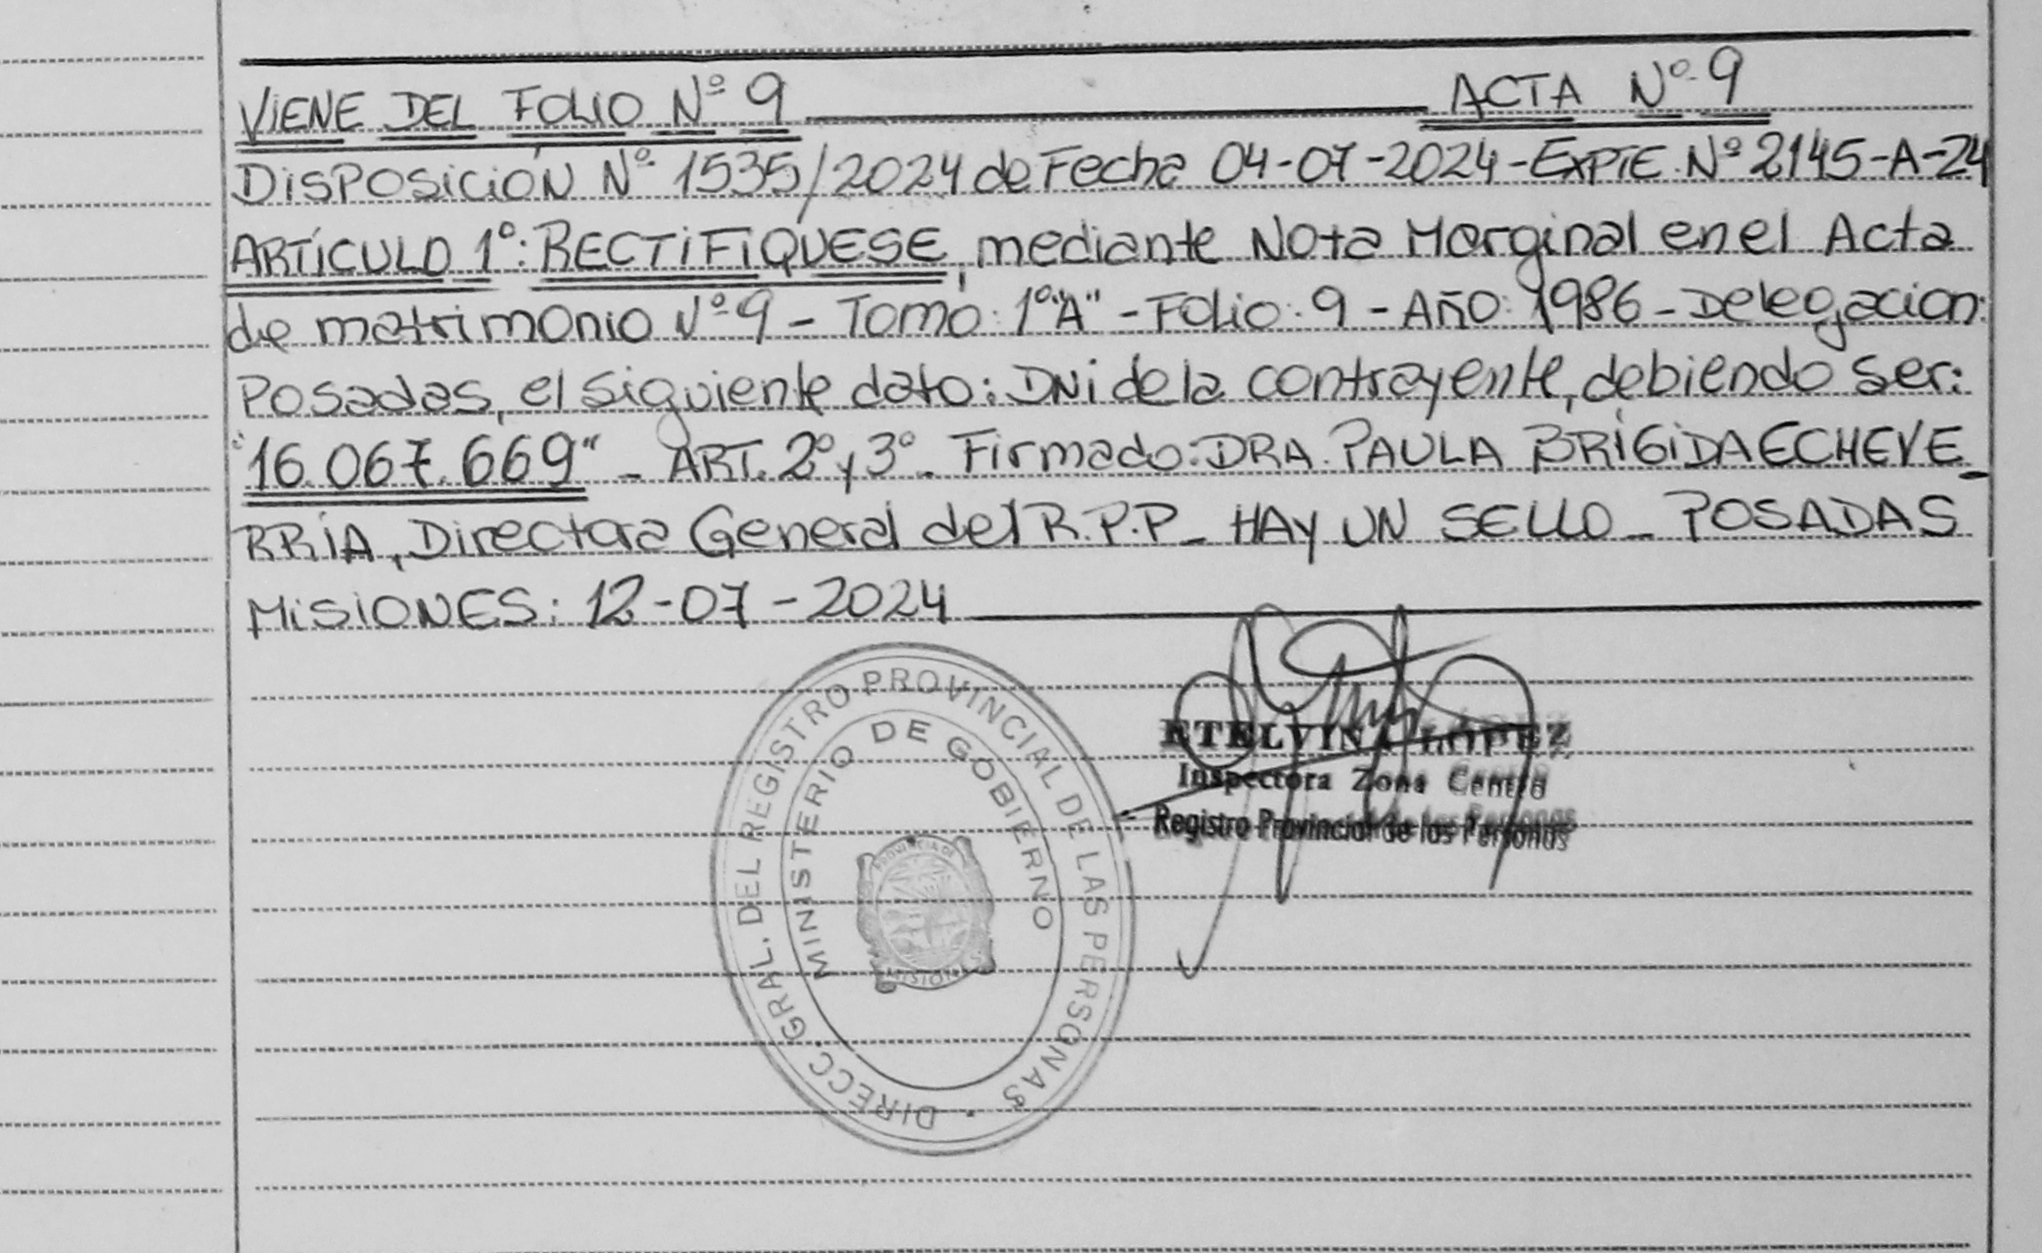 VIENE DEL FOLIO Nº 9 ACTA Nº 9
DISPOSICIÓN Nº 1535/2024 de Fecha 04-07-2024-EXPTE. Nº 2145-A-24
ARTÍCULO 1º: RECTIFÍQUESE, mediante Nota Marginal en el Acta
de matrimonio Nº 9 - Tomo: 1º "A" - Folio: 9 - Año: 1986 - Delegacion:
Posadas, el siguiente dato: DNi de la contrayente, debiendo ser:
"16.067.669" - ART. 2º y 3º - Firmado: DRA. PAULA BRÍGIDA ECHEVE-
RRÍA, Directora General del R.P.P - HAY UN SELLO - POSADAS
MISIONES: 12-07-2024
DIRECC. GRAL. DEL REGISTRO PROVINCIAL DE LAS PERSONAS
MINISTERIO DE GOBIERNO
PROVINCIA DE
MISIONES
ETELVINA LOPEZ
Inspectora Zona Centro
Registro Provincial de las Personas